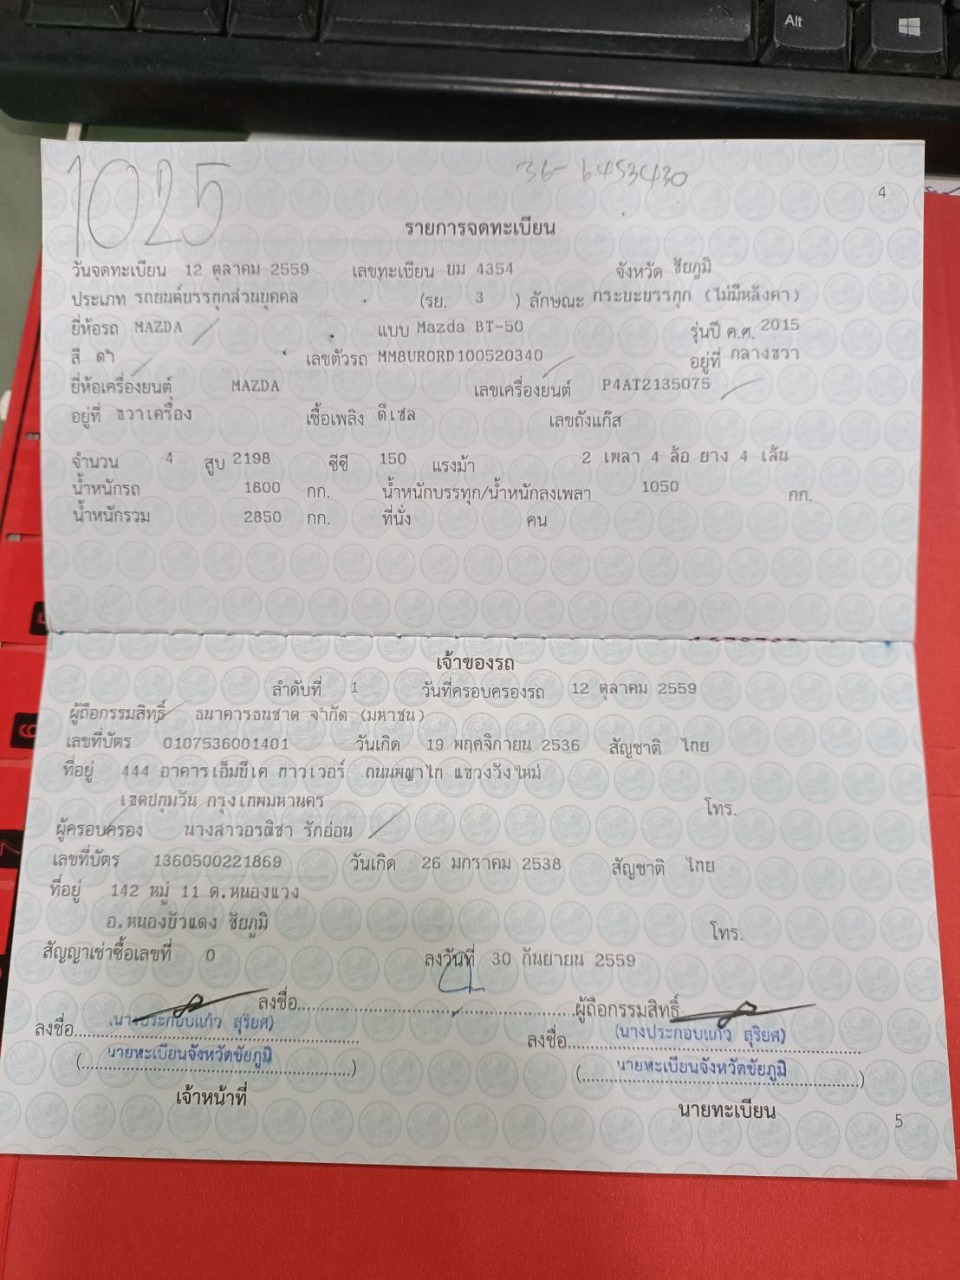 Alt
1025
36-6453430
4
รายการจดทะเบียน
วันจดทะเบียน 12 ตุลาคม 2559 เลขทะเบียน ขม 4354 จังหวัด ชัยภูมิ
ประเภท รถยนต์บรรทุกส่วนบุคคล (รย. 3 ) ลักษณะ กระบะบรรทุก (ไม่มีหลังคา)
ยี่ห้อรถ MAZDA แบบ Mazda BT-50 รุ่นปี ค.ศ. 2015
สี ดำ เลขตัวรถ MM8UR0RD100520340 อยู่ที่ กลางขวา
ยี่ห้อเครื่องยนต์ MAZDA เลขเครื่องยนต์ P4AT2135075
อยู่ที่ ขวาเครื่อง เชื้อเพลิง ดีเซล เลขถังแก๊ส
จำนวน 4 สูบ 2198 ซีซี 150 แรงม้า 2 เพลา 4 ล้อ ยาง 4 เส้น
น้ำหนักรถ 1800 กก. น้ำหนักบรรทุก/น้ำหนักลงเพลา 1050 กก.
น้ำหนักรวม 2850 กก. ที่นั่ง คน
เจ้าของรถ
ลำดับที่ 1 วันที่ครอบครองรถ 12 ตุลาคม 2559
ผู้ถือกรรมสิทธิ์ ธนาคารธนชาต จำกัด (มหาชน)
เลขที่บัตร 0107536001401 วันเกิด 19 พฤศจิกายน 2536 สัญชาติ ไทย
ที่อยู่ 444 อาคารเอ็มบีเค ทาวเวอร์ ถนนพญาไท แขวงวังใหม่
เขตปทุมวัน กรุงเทพมหานคร โทร.
ผู้ครอบครอง นางสาวอรณิชา รักอ่อน
เลขที่บัตร 1360500221869 วันเกิด 26 มกราคม 2538 สัญชาติ ไทย
ที่อยู่ 142 หมู่ 11 ต.หนองแวง
อ.หนองบัวแดง ชัยภูมิ โทร.
สัญญาเช่าซื้อเลขที่ 0 ลงวันที่ 30 กันยายน 2559
ลงชื่อ ผู้ถือกรรมสิทธิ์
ลงชื่อ (นางประกอบแก้ว สุริยศ) ลงชื่อ (นางประกอบแก้ว สุริยศ)
(นายทะเบียนจังหวัดชัยภูมิ) (นายทะเบียนจังหวัดชัยภูมิ)
เจ้าหน้าที่ นายทะเบียน
5